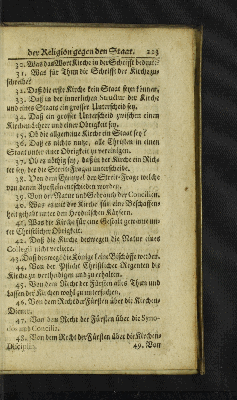 der Religion gegen den Staat. 223
30. Was das Wort Kirche in der Schrifft bedeute?
31. Was für Thun die Schrifft der Kirche zuschreibe?
32. Daß die erste Kirche kein Staat seyn können,
33. Daß in der innerlichen Structur der Kirche
und eines Staats ein grosser Unterscheid sey.
34. Daß ein grosser Unterscheid zwischen einem
Kirchen-Lehrer und einer Obrigkeit sey.
35. Ob die allgemeine Kirche ein Staat sey?
36. Daß es nichts nutze, alle Christen in einen
Staat unter einer Obrigkeit zu vereinigen.
37. Ob es nöthig sey, daß in der Kirche ein Rich-
ter sey, der die Streit-Fragen unterscheide.
38. Von dem Exempel der Streit-Frage welche
von denen Aposteln entschieden worden.
39. Von der Natur und Gebrauch der Concilien.
40. Was es mit der Kirche für eine Beschaffen-
heit gehabt unter den Heydnischen Käysern.
41. Was die Kirche für eine Gestalt gewonnen un-
ter Christlicher Obrigkeit.
42. Daß die Kirche deswegen die Natur eines
Collegii nicht verliere.
43. Daß deswegen die Könige keine Bischöffe werden.
44. Von der Pflicht Christlicher Regenten die
Kirche zu vertheidigen und zu erhalten.
45. Von dem Recht der Fürsten alles Thun und
lassen der Kirchen wohl zu untersuchen.
46. Von dem Recht der Fürsten über die Kirchen-
Diener.
47. Von dem Recht der Fürsten über die Syno-
dos und Concilia.
48. Von dem Recht der Fürsten über die Kirchen-
Disciplin.
49. Von